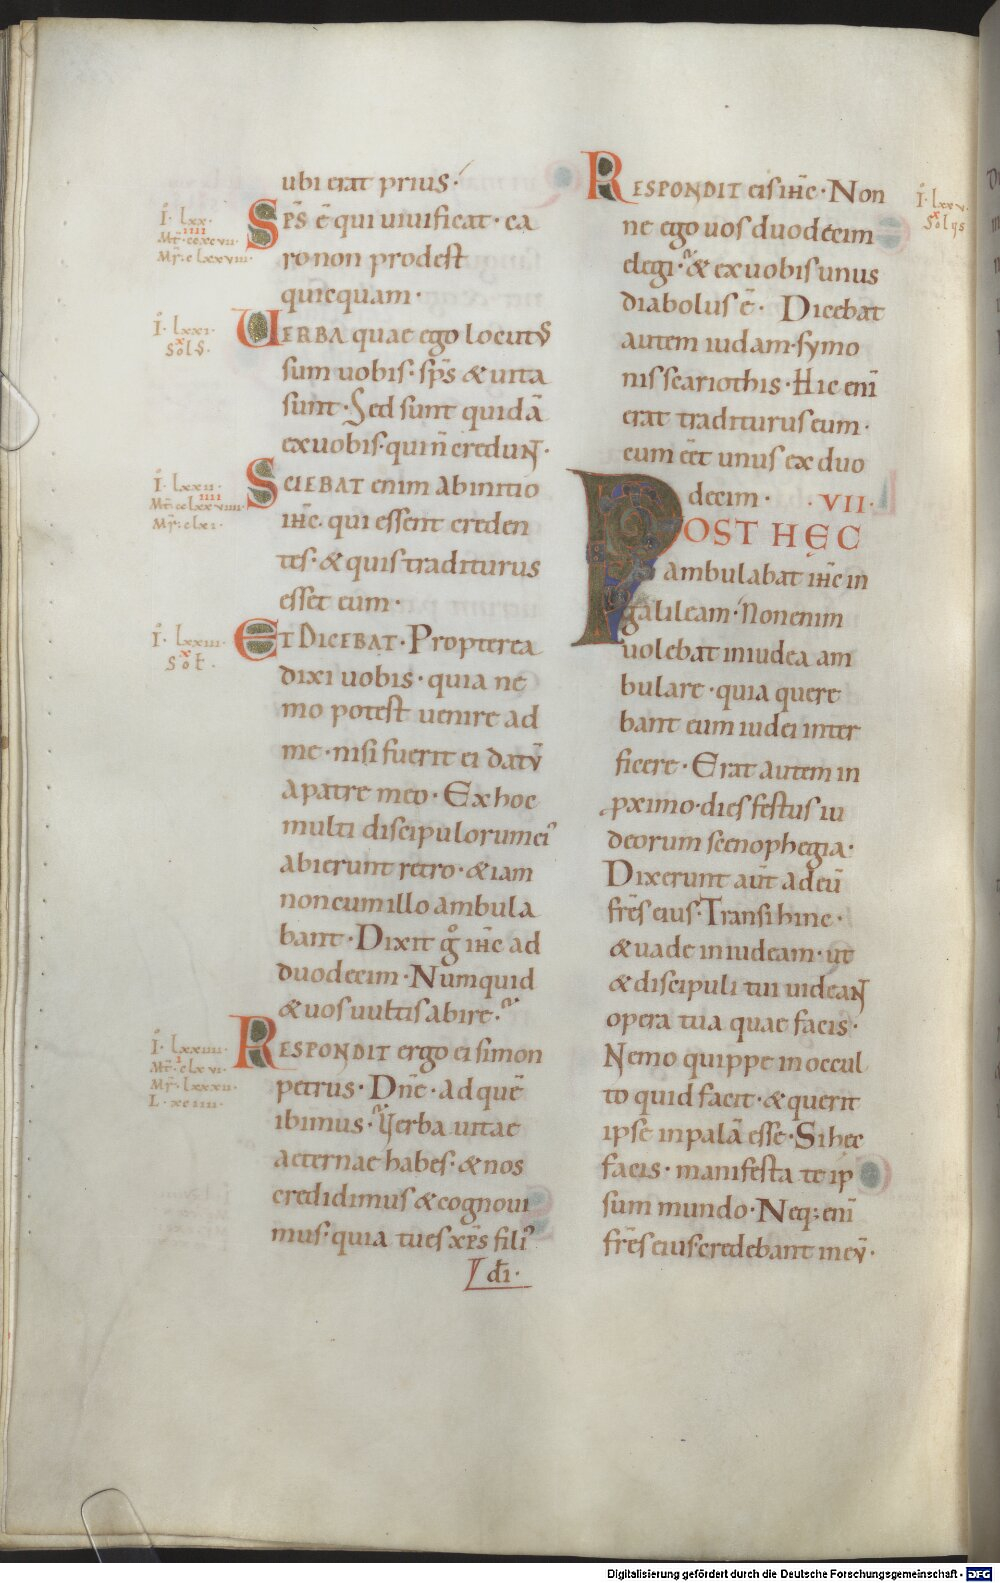 ubi erat prius·
I· lxx·
Mt̄· ccxcvii·
Mr̄· clxxviii·
Sp̄s ē qui uiuificat· ca
ro non prodest
quicquam·
I· lxxi·
Sol̄s·
Uerba quae ego locutus
sum uobis· sp̄s & uita
sunt· Sed sunt quidā
ex uobis· qui n̄ credunt·
I· lxxii·
Mr̄· clxi·
Sciebat enim ab initio
ih̄c· qui essent creden
tes· & quis traditurus
esset eum·
I· lxxiii·
Et dicebat· Propterea
dixi uobis· quia ne
mo potest uenire ad
me· nisi fuerit ei datū
a patre meo· Ex hoc
multi discipulorum ei᾽
abierunt retro· & iam
non cum illo ambula
bant· Dixit gͦ ih̄c ad
duodecim· Numquid
& uos uultis abire·
I· lxxiiii·
Mt̄· clxvi·
Mr̄· lxxxii·
L· xciiii·
Respondit ergo ei simon
petrus· Dn̄e· ad quē
ibimus· Uerba uitae
aeternae habes· & nos
credidimus & cognoui
mus· quia tu es xp̄s fili᾽
dī·
Respondit eis ih̄c· Non
I· lxxv·
ne ego uos duodecim
elegi· & ex uobis unus
diabolus ē· Dicebat
autem iudam· symo
nis scariothis· Hic enī
erat traditurus eum·
cum ēet unus ex duo
decim· ·VII·
POST HĘC
ambulabat ih̄c in
galileam· Non enim
uolebat in iudea am
bulare· quia quere
bant eum iudei inter
ficere· Erat autem in
p̱ximo· dies festus iu
deorum scenophegia·
Dixerunt aūt ad eū
fr̄es eius· Transi hinc·
& uade in iudeam· ut
& discipuli tui uideant
opera tua quae facis·
Nemo quippe in occul
to quid facit· & querit
ipse in palā esse· Si hec
facis· manifesta te ip
sum mundo· Neq; enī
fr̄es eius· credebant in eū·
Digitalisierung gefördert durch die Deutsche Forschungsgemeinschaft - DFG